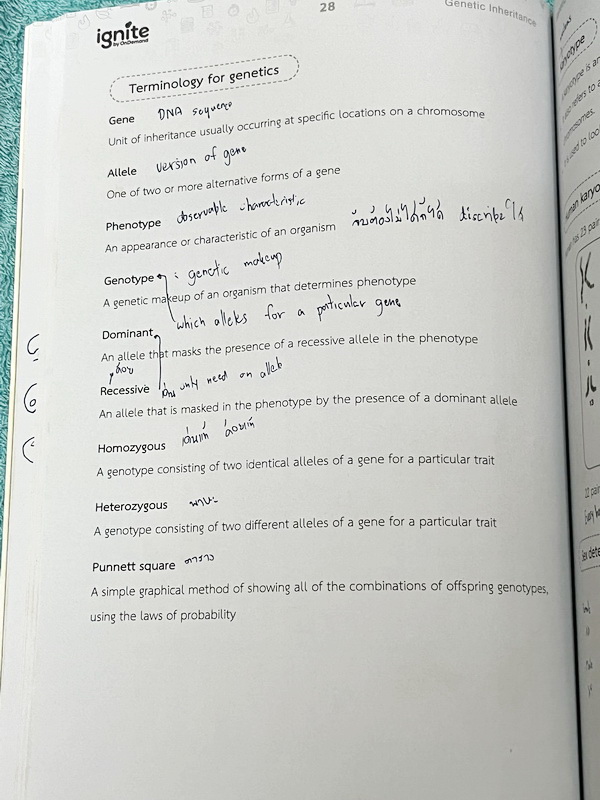 28
Genetic Inheritance
ignite
by OnDemand
Terminology for genetics
Gene DNA sequence
Unit of inheritance usually occurring at specific locations on a chromosome
Allele version of gene
One of two or more alternative forms of a gene
Phenotype observable characteristic
An appearance or characteristic of an organism
Genotype : genetic makeup
A genetic makeup of an organism that determines phenotype
which alleles for a particular gene
Dominant
An allele that masks the presence of a recessive allele in the phenotype
ด้อย
Recessive only need an
An allele that is masked in the phenotype by the presence of a dominant allele
Homozygous เด่นแท้ ด้อยแท้
A genotype consisting of two identical alleles of a gene for a particular trait
Heterozygous
A genotype consisting of two different alleles of a gene for a particular trait
Punnett square ตาราง
A simple graphical method of showing all of the combinations of offspring genotypes,
using the laws of probability